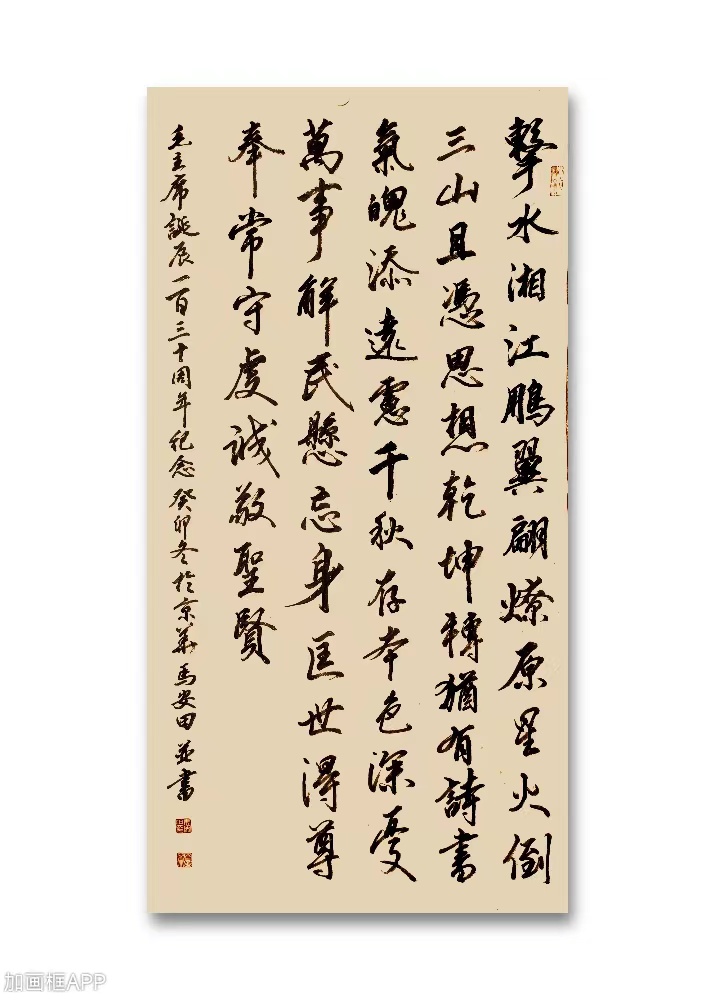 擊水湘江鵬翼翩燎原星火倒
三山且憑思想乾坤轉猶有詩書
氣魄添遠慮千秋存本色深憂
萬事解民懸忘身匡世得尊
奉常守虔誠敬聖賢
毛主席誕辰一百三十周年纪念癸卯冬於京華馬安田并書
加画框APP